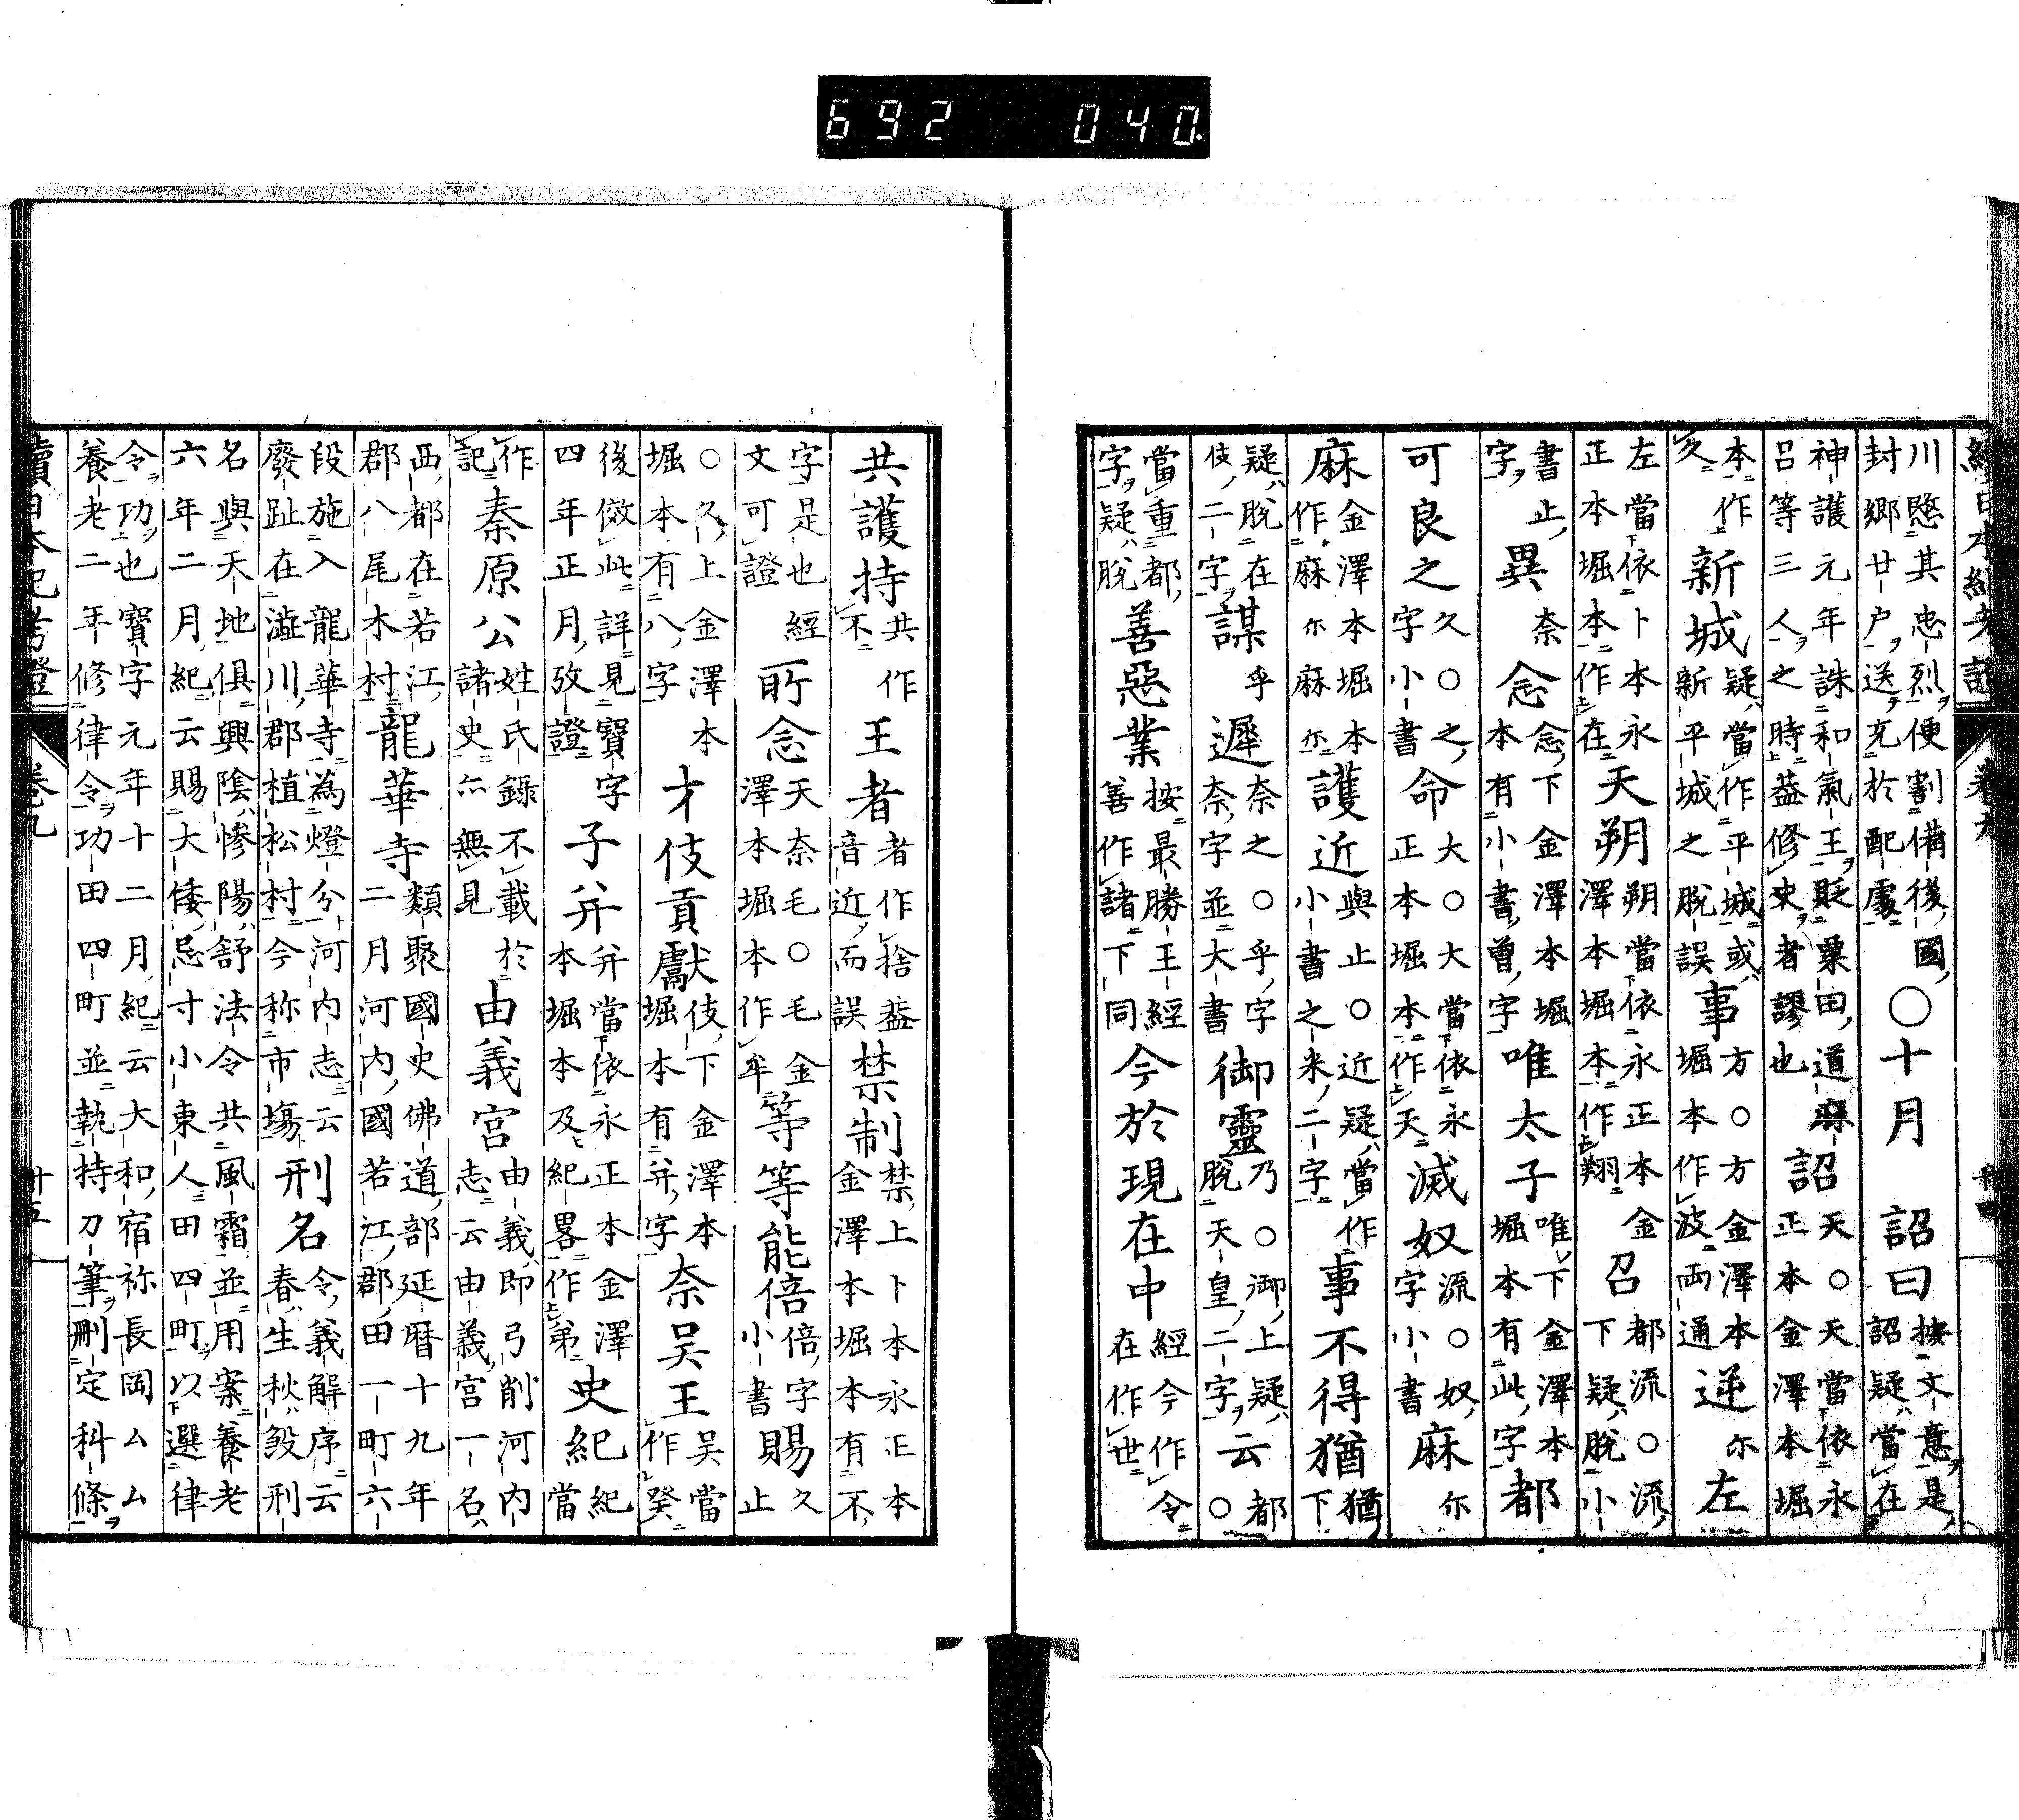 692 040
續日本紀考證 卷九
川愍其忠烈便割備後國封郷廿戸送充於配處○十月 詔曰按文意是詔疑當在
神護元年誅和氣王貶粟田道麻呂等三人之時蓋修史者謬也詔天○天當依永正本金澤本堀
本作久新城疑當作平城或新平城之脱誤事方○方金澤本堀本作波両通逆尓左
左當依卜本永正本堀本作在天朔朔當依永正本金澤本堀本作翔召都流○流下疑脱小
書止字異奈念念下金澤本堀本有小書曽字唯太子唯下金澤本堀本有此字都
可良之久○之字小書命大○大當依永正本堀本作天滅奴流○奴字小書麻尓
麻金澤本堀本作麻尓麻尓護近與止○近疑當作小書之米二字事不得猶猶下
疑脱在伎二字謀乎遲奈之○乎字奈字並大書御靈乃○御上疑脱天皇二字云都○
當重都字疑脱善惡業按最勝王經善作諸下同今於現在中經今作令在作世
共護持共作不王者者作捨蓋音近而誤禁制禁上卜本永正本金澤本堀本有不
字是也經文可證所念天奈毛○毛金澤本堀本作牟等等能倍倍字小書賜久止
○久上金澤本堀本有八字才伎貢獻伎下金澤本堀本有并字奈吴王吴當作癸
後倣此詳見寳字四年正月攷證子并并當依永正本金澤本堀本及紀畧作弟史紀紀當
作記秦原公姓氏録不載於諸史亦無見由義宮由義即弓削河内志云由義宮一名
西都在若江郡八尾木村龍華寺類聚國史佛道部延暦十九年二月河内國若江郡田一町六
段施入龍華寺為燈分河内志云廢趾在澁川郡植松村今称市塲刑名令義解序云春生秋殺刑
名與天地俱興陰慘陽舒法令共風霜並用案養老六年二月紀云賜大倭忌寸小東人田四町以選律
令功也寳字元年十二月紀云大和宿祢長岡ムム養老二年修律令功田四町並執持刀筆刪定科條
續日本紀考證 卷九 廿五